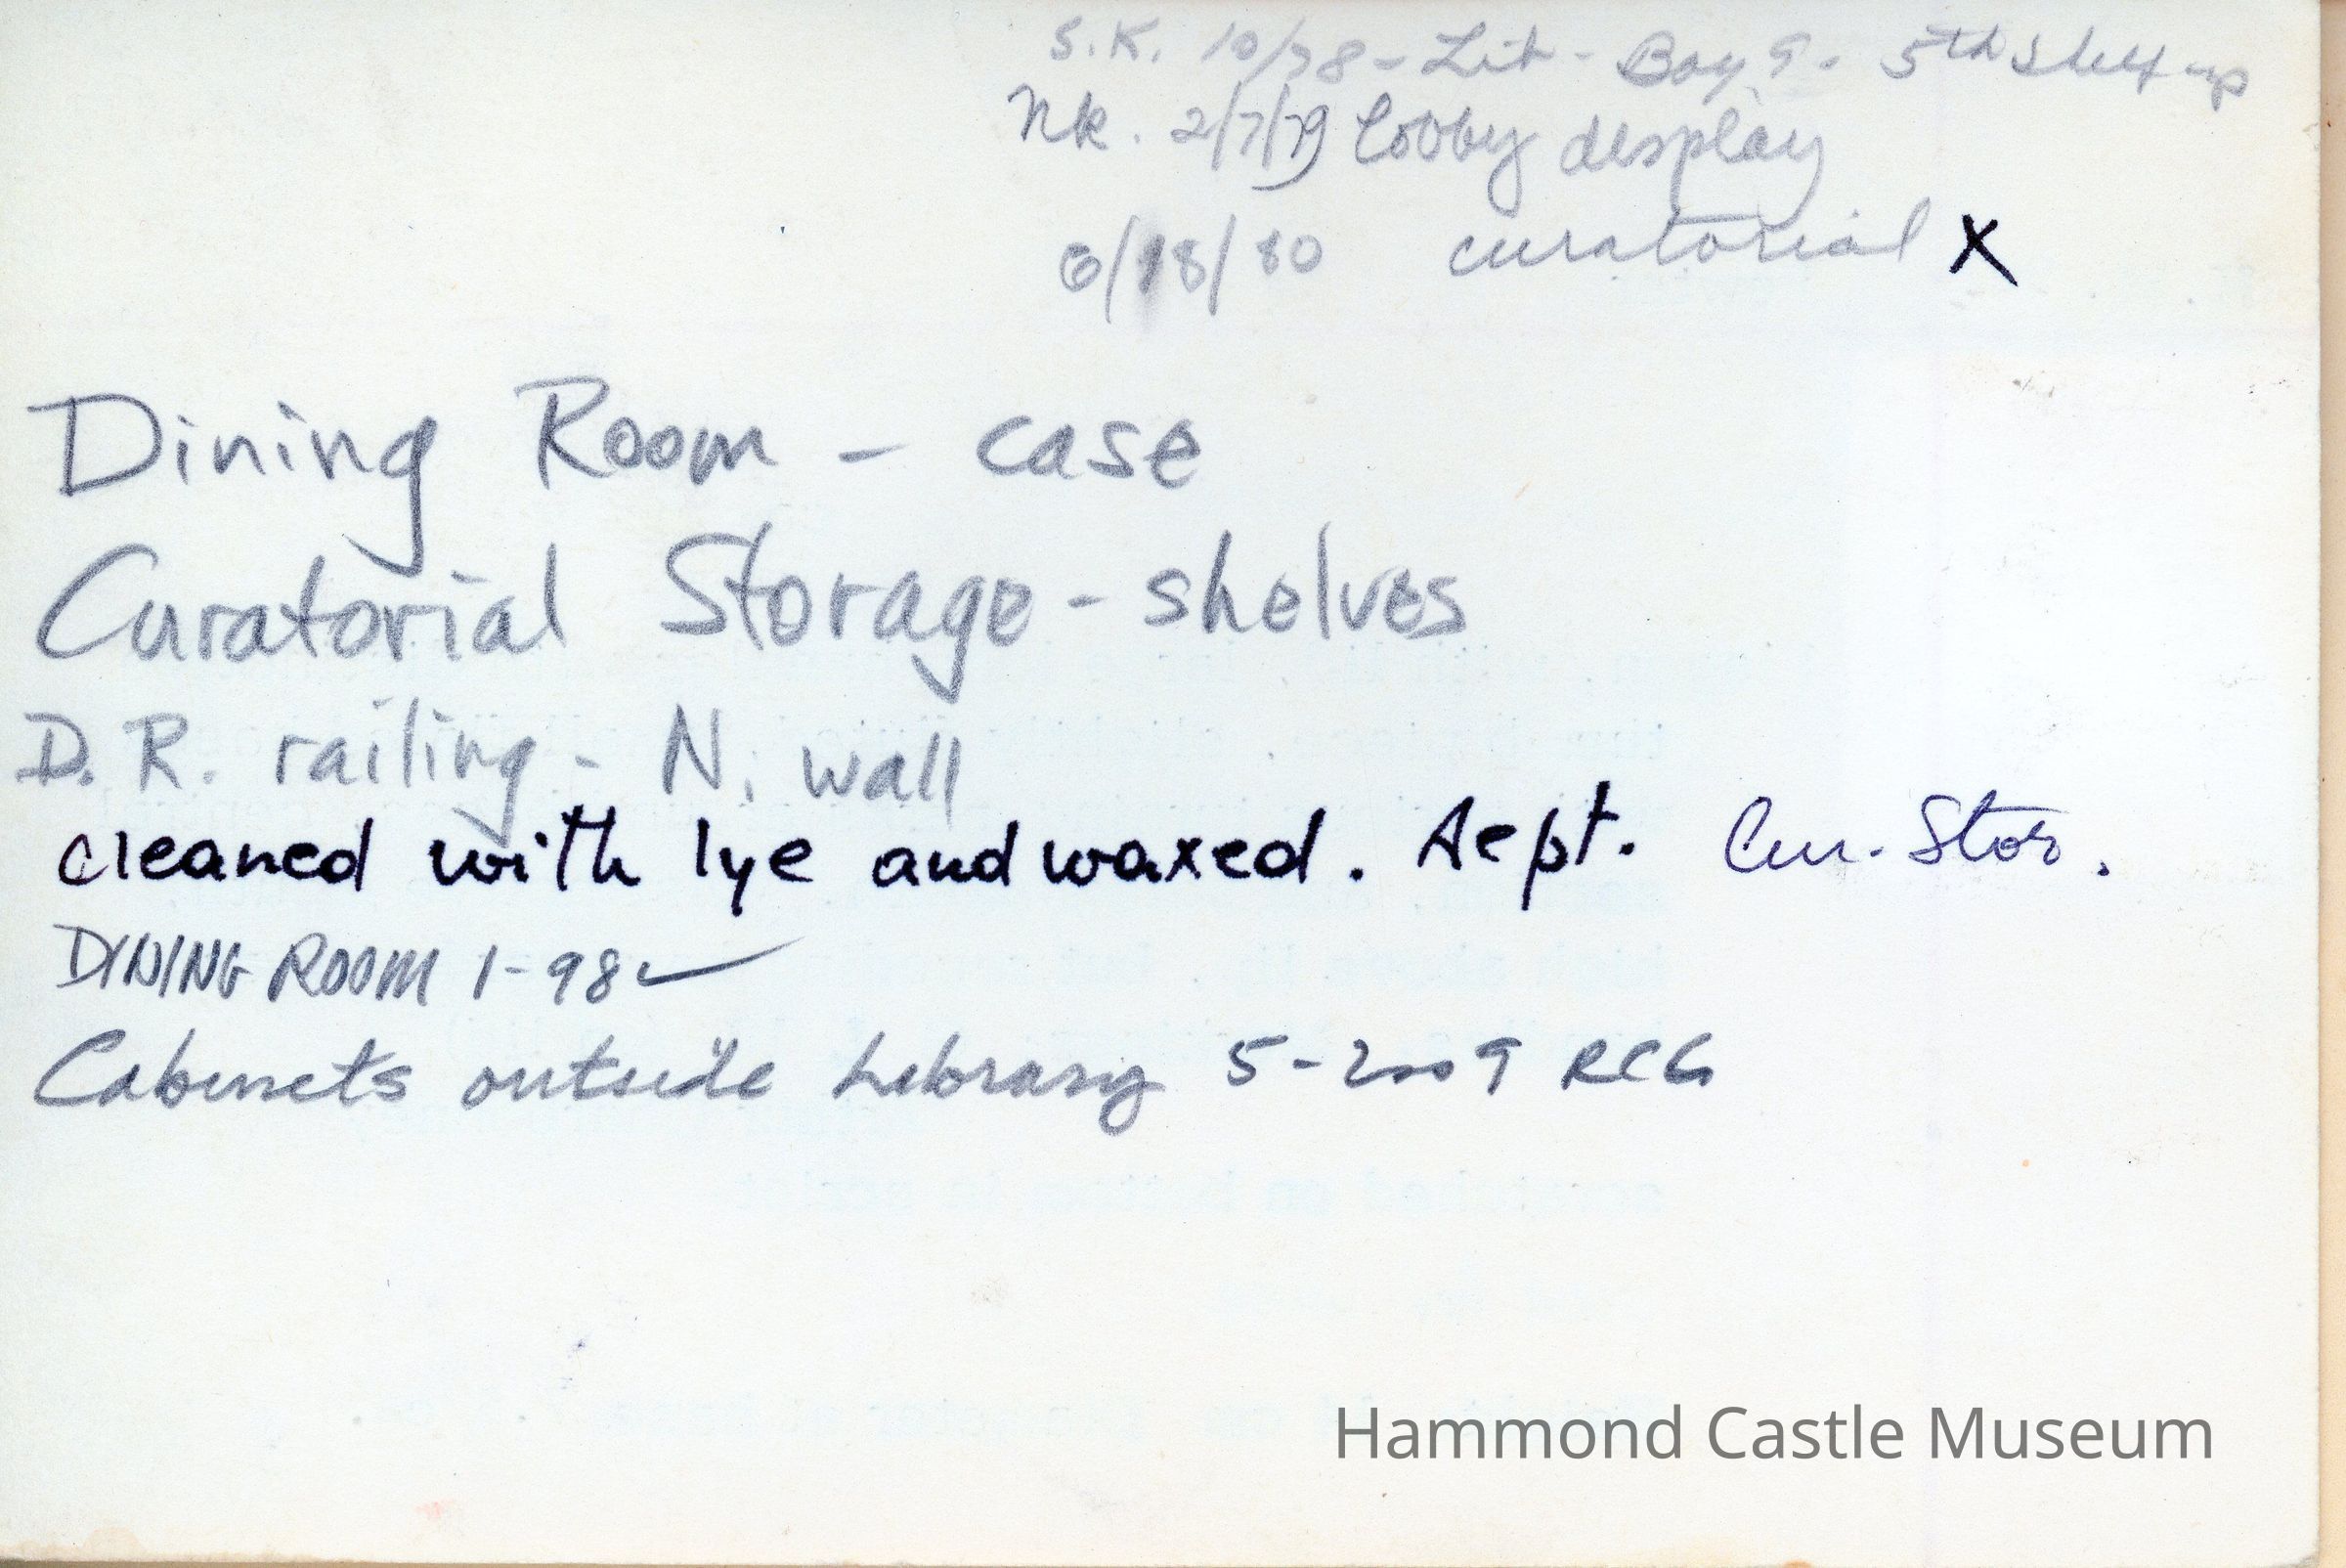 S.K. 10/78 - Lib - Bay 9 - 5th shelf up
nk. 2/7/79 lobby display
6/18/80 curatorial X
Dining Room - case
Curatorial Storage - shelves
D.R. railing - N. wall
cleaned with lye and waxed. Sept. Cur. Stor.
DINING ROOM 1-98 ✓
Cabinets outside Library 5-2009 RCG
Hammond Castle Museum